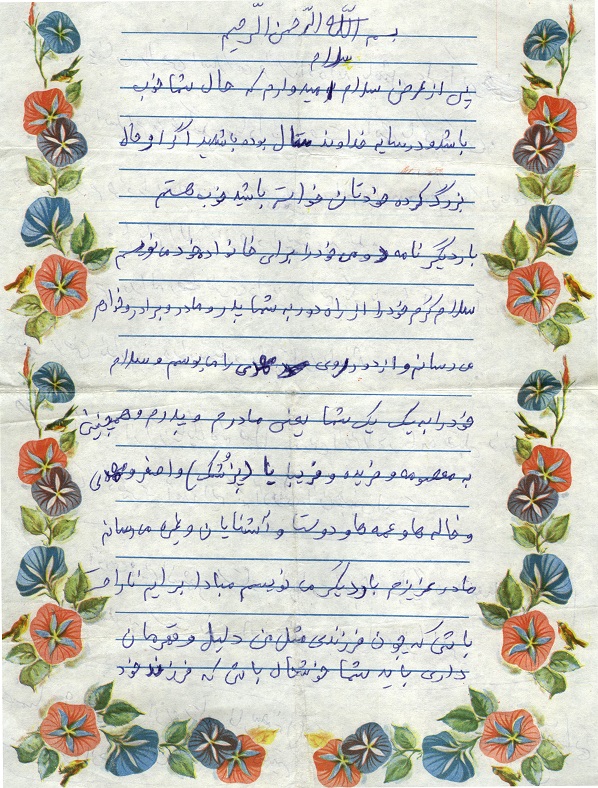 بسم الله الرحمن الرحیم
سلام
پس از عرض سلام امیدوارم که حال شما خوب
باشد و در سایه خداوند متعال بوده باشید اگر احوال
بزرگ کرده خودتان خواسته باشید خوب هستم
بار دیگر نامه دومی خود را برای خانواده خود می نویسم
سلام گرم خود را از راه دور به شما پدر و مادر و برادر و خواهر
می رسانم و از دور روی مهدی را می بوسم و سلام
خود را به یک یک شما یعنی مادرم و پدرم و همچنین
به معصومه و فریده و فریبا یا (پزشک) و اصغر و مهدی
و خاله ها و عمه ها و دوستا و آشنایان و می رسانم
مادر عزیزم بار دیگر می نویسم مبادا برایم ناراحت
باشی که چون فرزندی مثل من دلیل و قهرمان
داری باید شما خوشحال باشی که فرزند خود